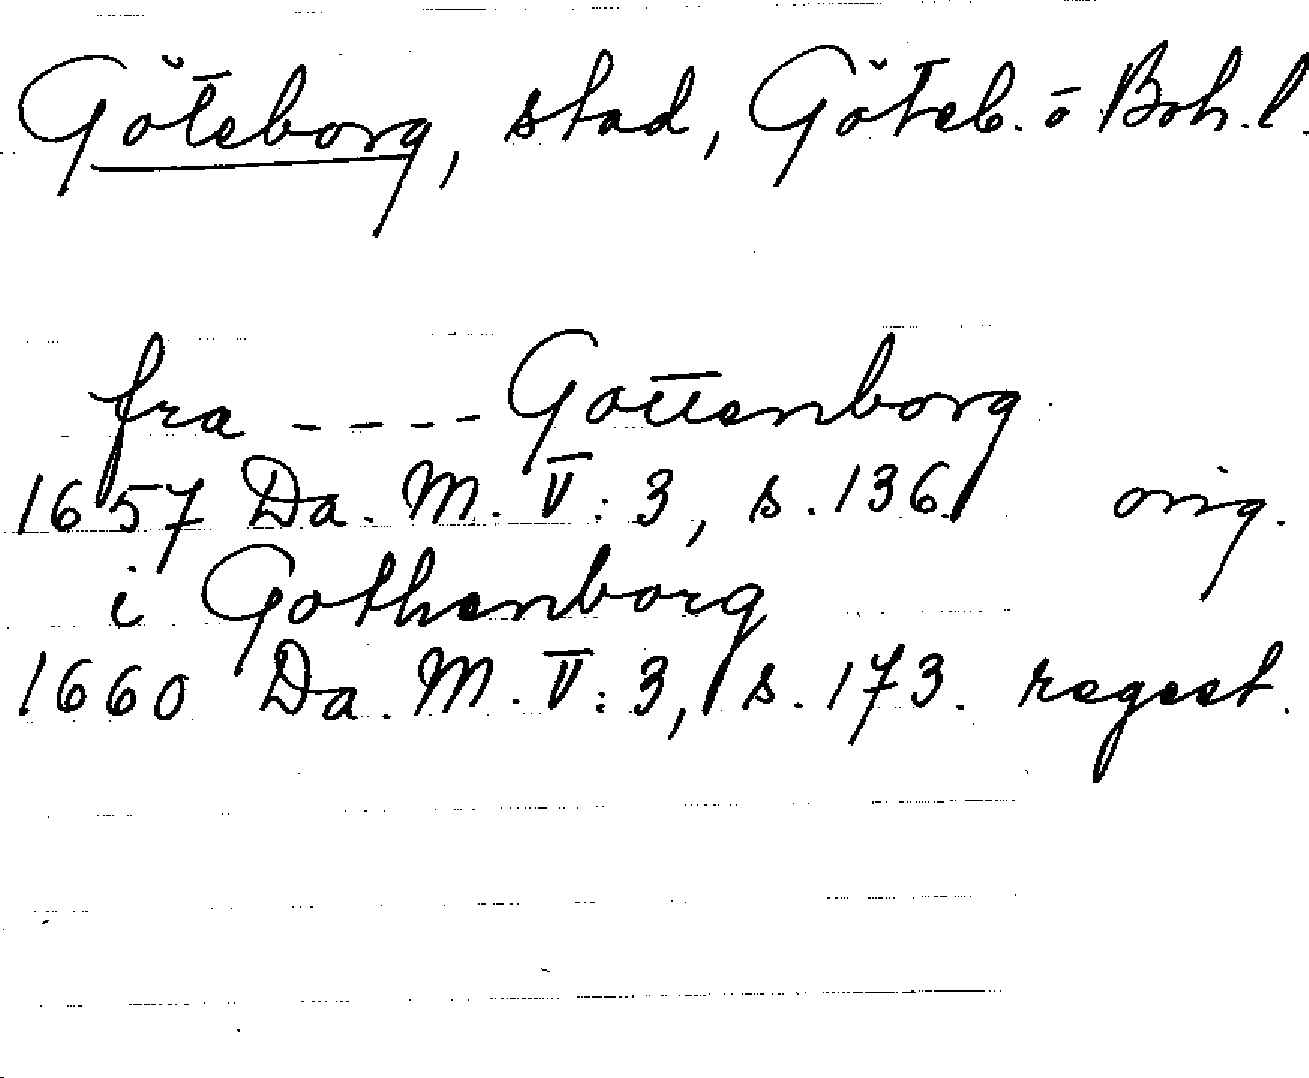 Göteborg, stad, Göteb. o Boh. l.
fra ---- Gottenborg
1657 Da. M. V: 3, s. 136. orig.
i Gothenborg
1660 Da. M. V: 3, s. 173. regest.